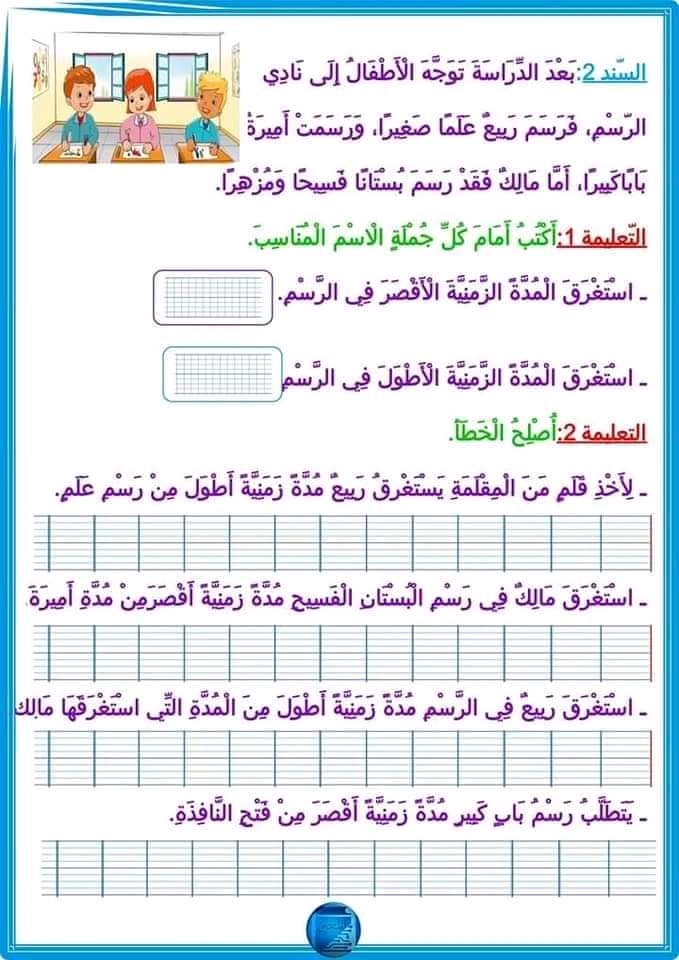 السّند 2:بَعْدَ الدِّرَاسَةَ تَوَجَّهَ الْأَطْفَالُ إِلَى نَادِي
الرّسْمِ، فَرَسَمَ رَبِيعٌ عَلَمًا صَغِيرًا، وَرَسَمَتْ أَمِيرَةُ
بَابًاكَبِيرًا، أَمَّا مَالِكٌ فَقَدْ رَسَمَ بُسْتَانًا فَسِيحًا وَمُزْهِرًا.
التّعليمة 1:أَكْتُبُ أَمَامَ كُلِّ جُمْلَةٍ الْاسْمَ الْمُنَاسِبَ.
ـ اسْتَغْرَقَ الْمُدَّةَ الزَّمَنِيَّةَ الْأَقْصَرَ فِي الرَّسْمِ.
ـ اسْتَغْرَقَ الْمُدَّةَ الزَّمَنِيَّةَ الْأَطْوَلَ فِي الرَّسْمِ
التعليمة 2:أُصْلِحُ الْخَطَأَ.
ـ لِأَخْذِ قَلَمٍ مَنَ الْمِقْلَمَةِ يَسْتَغْرِقُ رَبِيعٌ مُدَّةً زَمَنِيَّةً أَطْوَلَ مِنْ رَسْمِ عَلَمٍ.
ـ اسْتَغْرَقَ مَالِكٌ فِي رَسْمِ الْبُسْتَانِ الْفَسِيحِ مُدَّةً زَمَنِيَّةً أَقْصَرَمِنْ مُدَّةِ أَمِيرَةَ.
ـ اسْتَغْرَقَ رَبِيعٌ فِي الرَّسْمِ مُدَّةً زَمَنِيَّةً أَطْوَلَ مِنَ الْمُدَّةِ التِّي اسْتَغْرَقَهَا مَالِك
ـ يَتَطَلَّبُ رَسْمُ بَابٍ كَبِيرٍ مُدَّةً زَمَنِيَّةً أَقْصَرَ مِنْ فَتْحِ النَّافِذَةِ.